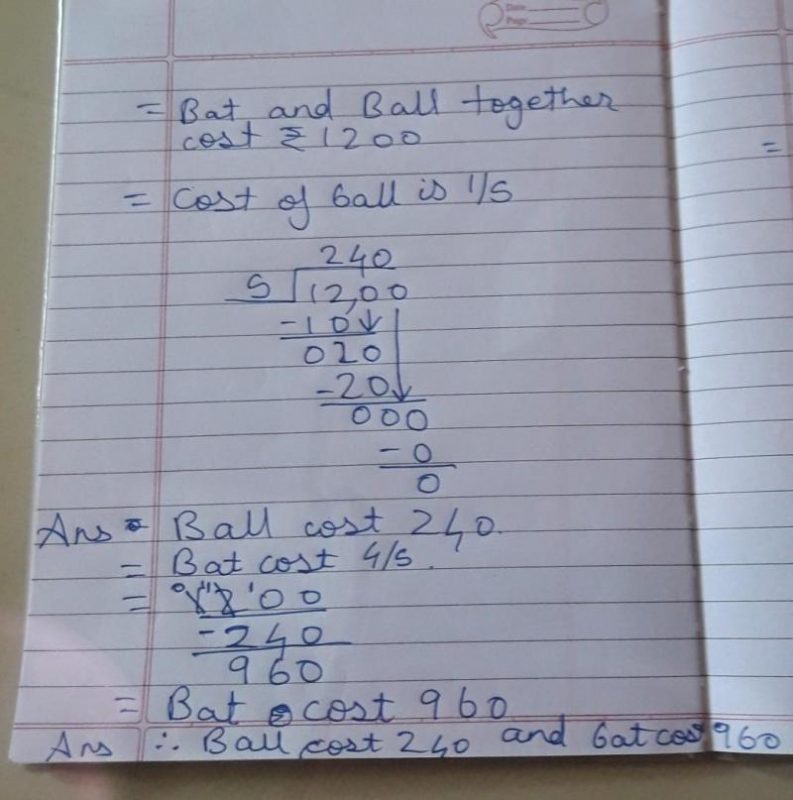 Date
Page
= Bat and Ball together
cost ₹1200
=
= Cost of ball is 1/5
240
5 1200
-10
020
-20
000
-0
0
Ans = Ball cost 240.
= Bat cost 4/5.
= 1200
-240
960
= Bat cost 960
Ans ∴ Ball cost 240 and bat cost 960